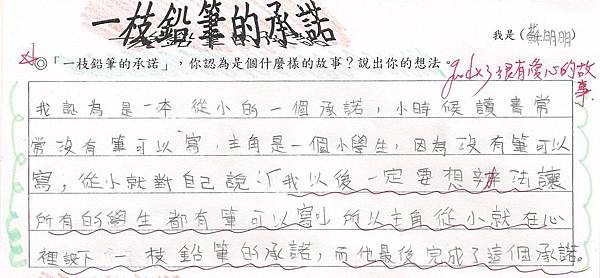 一枝鉛筆的承諾
我是(蘇明明)
◎「一枝鉛筆的承諾」，你認為是個什麼樣的故事？說出你的想法。
很有愛心的故事.
我認為是一本從小的一個承諾，小時候讀書常
常沒有筆可以寫，主角是一個小學生，因為沒有筆可以
寫，從小就對自己說：「我以後一定要想辦法讓
所有的學生都有筆可以寫」所以主角從小就在心
裡許下一枝鉛筆的承諾，而他最後完成了這個承諾。